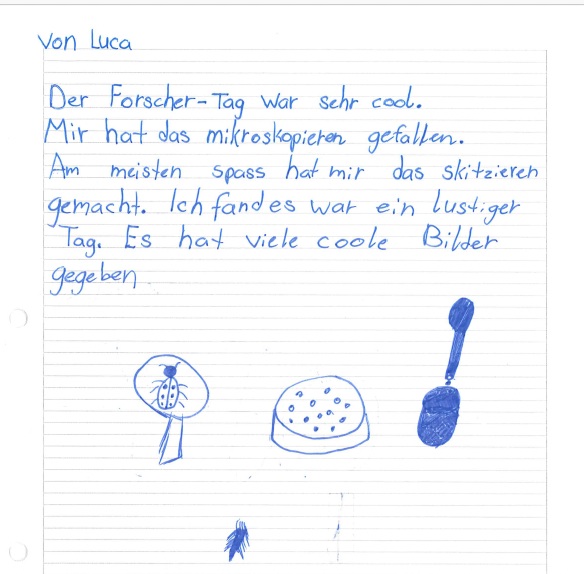 Von Luca
Der Forscher-Tag war sehr cool.
Mir hat das mikroskopieren gefallen.
Am meisten spass hat mir das skitzieren
gemacht. Ich fand es war ein lustiger
Tag. Es hat viele coole Bilder
gegeben